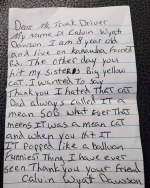 Dear Mr Truck Driver
My name Is Calvin Wyat
Dawson I am 8 year old
and live on Kanauha Forest
Rd. The other day you
hit my sisters Big yellow
cat. I wanted to say
thank you I hated THAT CAT
Dad always called IT a
mean SOB what ever THAT
means IT was a mean CAT
and when you HIT IT
IT Popped like a balloon
Funniest Thing I have ever
seen Thank you your friend
Calvin Wyat Dawson